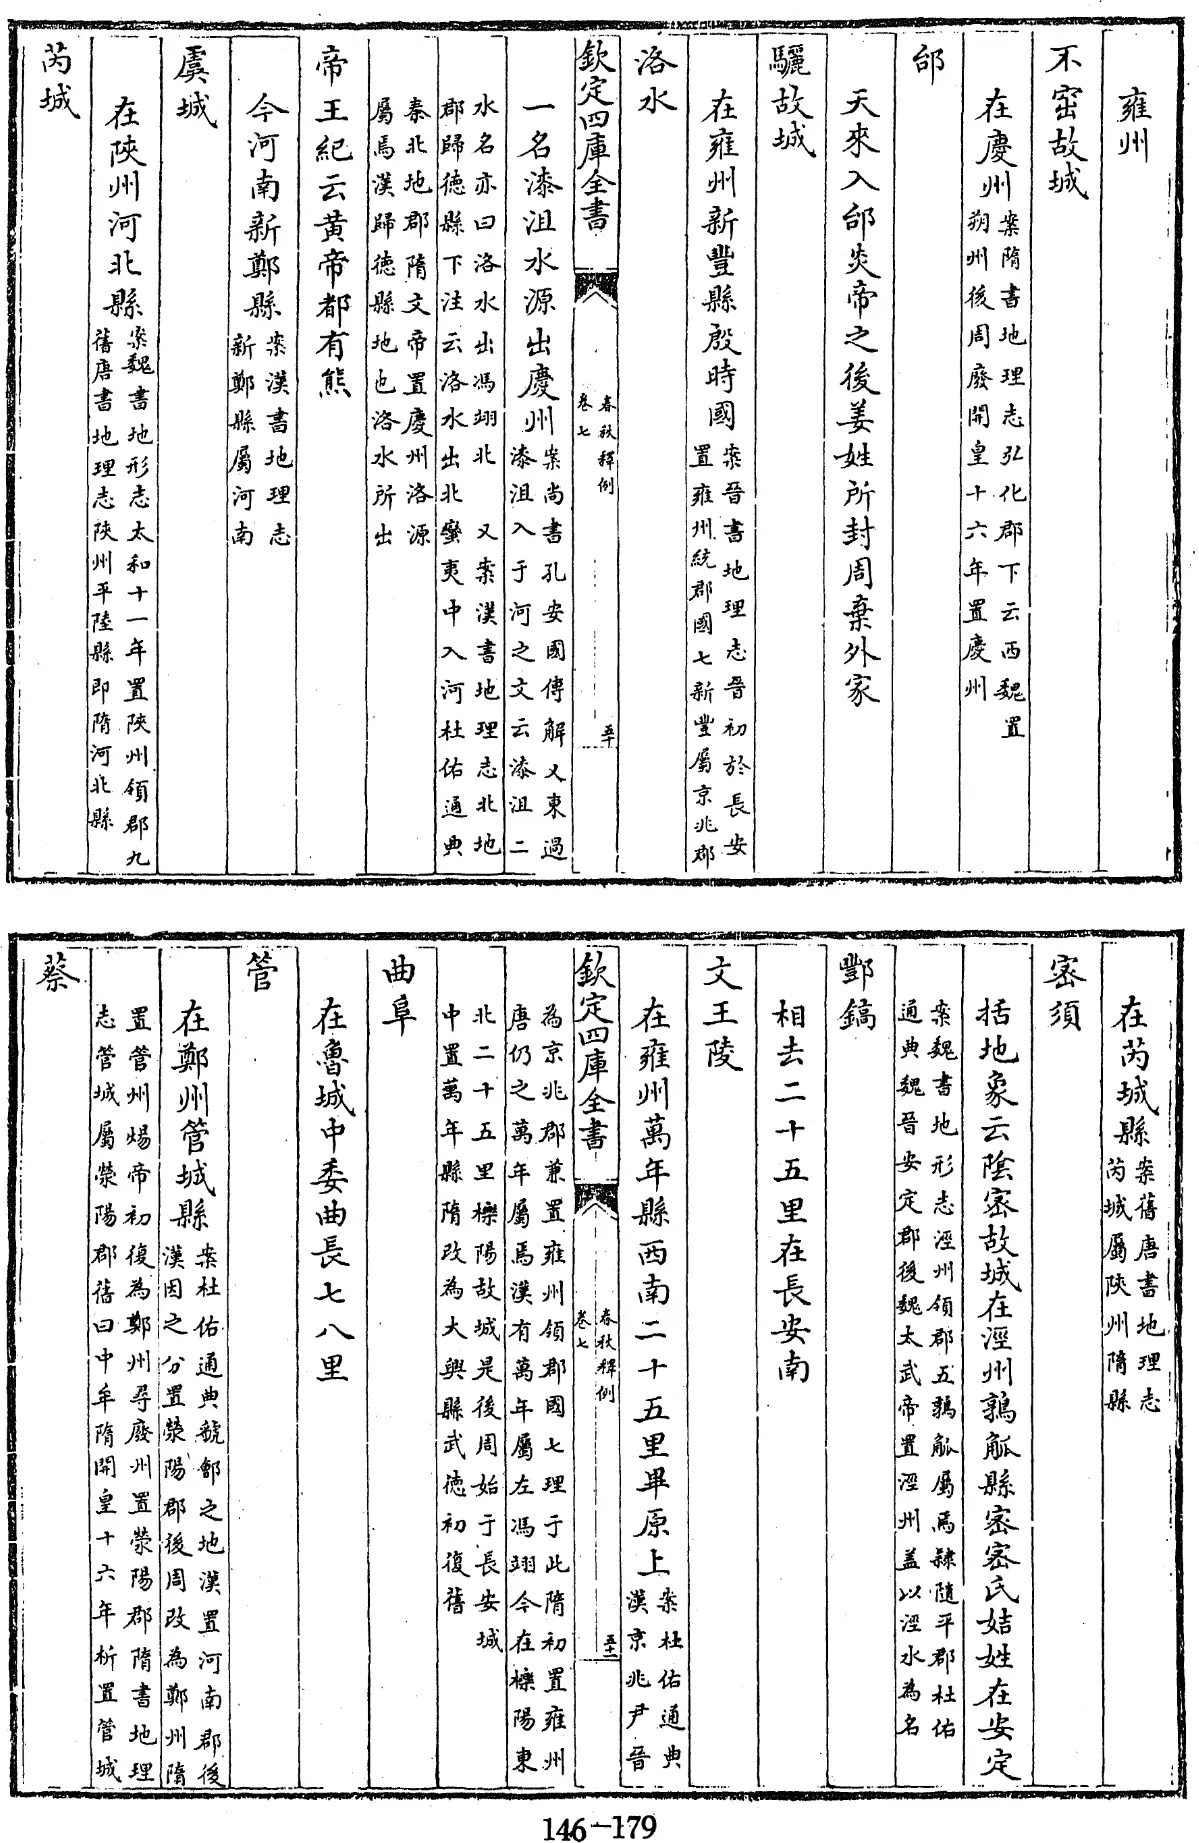 雍州
不窋故城
在慶州案隋書地理志弘化郡下云西魏置
朔州後周廢開皇十六年置慶州
邰
天來入邰炎帝之後姜姓所封周棄外家
驪故城
在雍州新豐縣殷時國案晉書地理志晉初於長安
置雍州統郡國七新豐屬京兆郡
洛水
欽定四庫全書
春秋釋例
卷七
五十
一名漆沮水源出慶州案尚書孔安國傳解又東過
漆沮入于河之文云漆沮二
水名亦曰洛水出馮翊北 又案漢書地理志北地
郡歸德縣下注云洛水出北蠻夷中入河杜佑通典
秦北地郡隋文帝置慶州洛源
屬焉漢歸德縣地也洛水所出
帝王紀云黃帝都有熊
今河南新鄭縣案漢書地理志
新鄭縣屬河南
虞城
在陜州河北縣案魏書地形志太和十一年置陜州領郡九
舊唐書地理志陜州平陸縣即隋河北縣
芮城
在芮城縣案舊唐書地理志
芮城屬陜州隋縣
密須
括地象云陰密故城在涇州鶉觚縣密密氏姞姓在安定
案魏書地形志涇州領郡五鶉觚屬焉隸隨平郡杜佑
通典魏晉安定郡後魏太武帝置涇州蓋以涇水為名
酆鎬
相去二十五里在長安南
文王陵
在雍州萬年縣西南二十五里畢原上案杜佑通典
漢京兆尹晉
欽定四庫全書
春秋釋例
卷七
五十一
為京兆郡兼置雍州領郡國七理于此隋初置雍州
唐仍之萬年屬焉漢有萬年屬左馮翊今在櫟陽東
北二十五里櫟陽故城是後周始于長安城
中置萬年縣隋改為大興縣武德初復舊
曲阜
在魯城中委曲長七八里
管
在鄭州管城縣案杜佑通典虢鄶之地漢置河南郡後
漢因之分置滎陽郡後周改為鄭州隋
置管州煬帝初復為鄭州尋廢州置滎陽郡隋書地理
志管城屬滎陽郡舊曰中牟隋開皇十六年析置管城
蔡
146-179